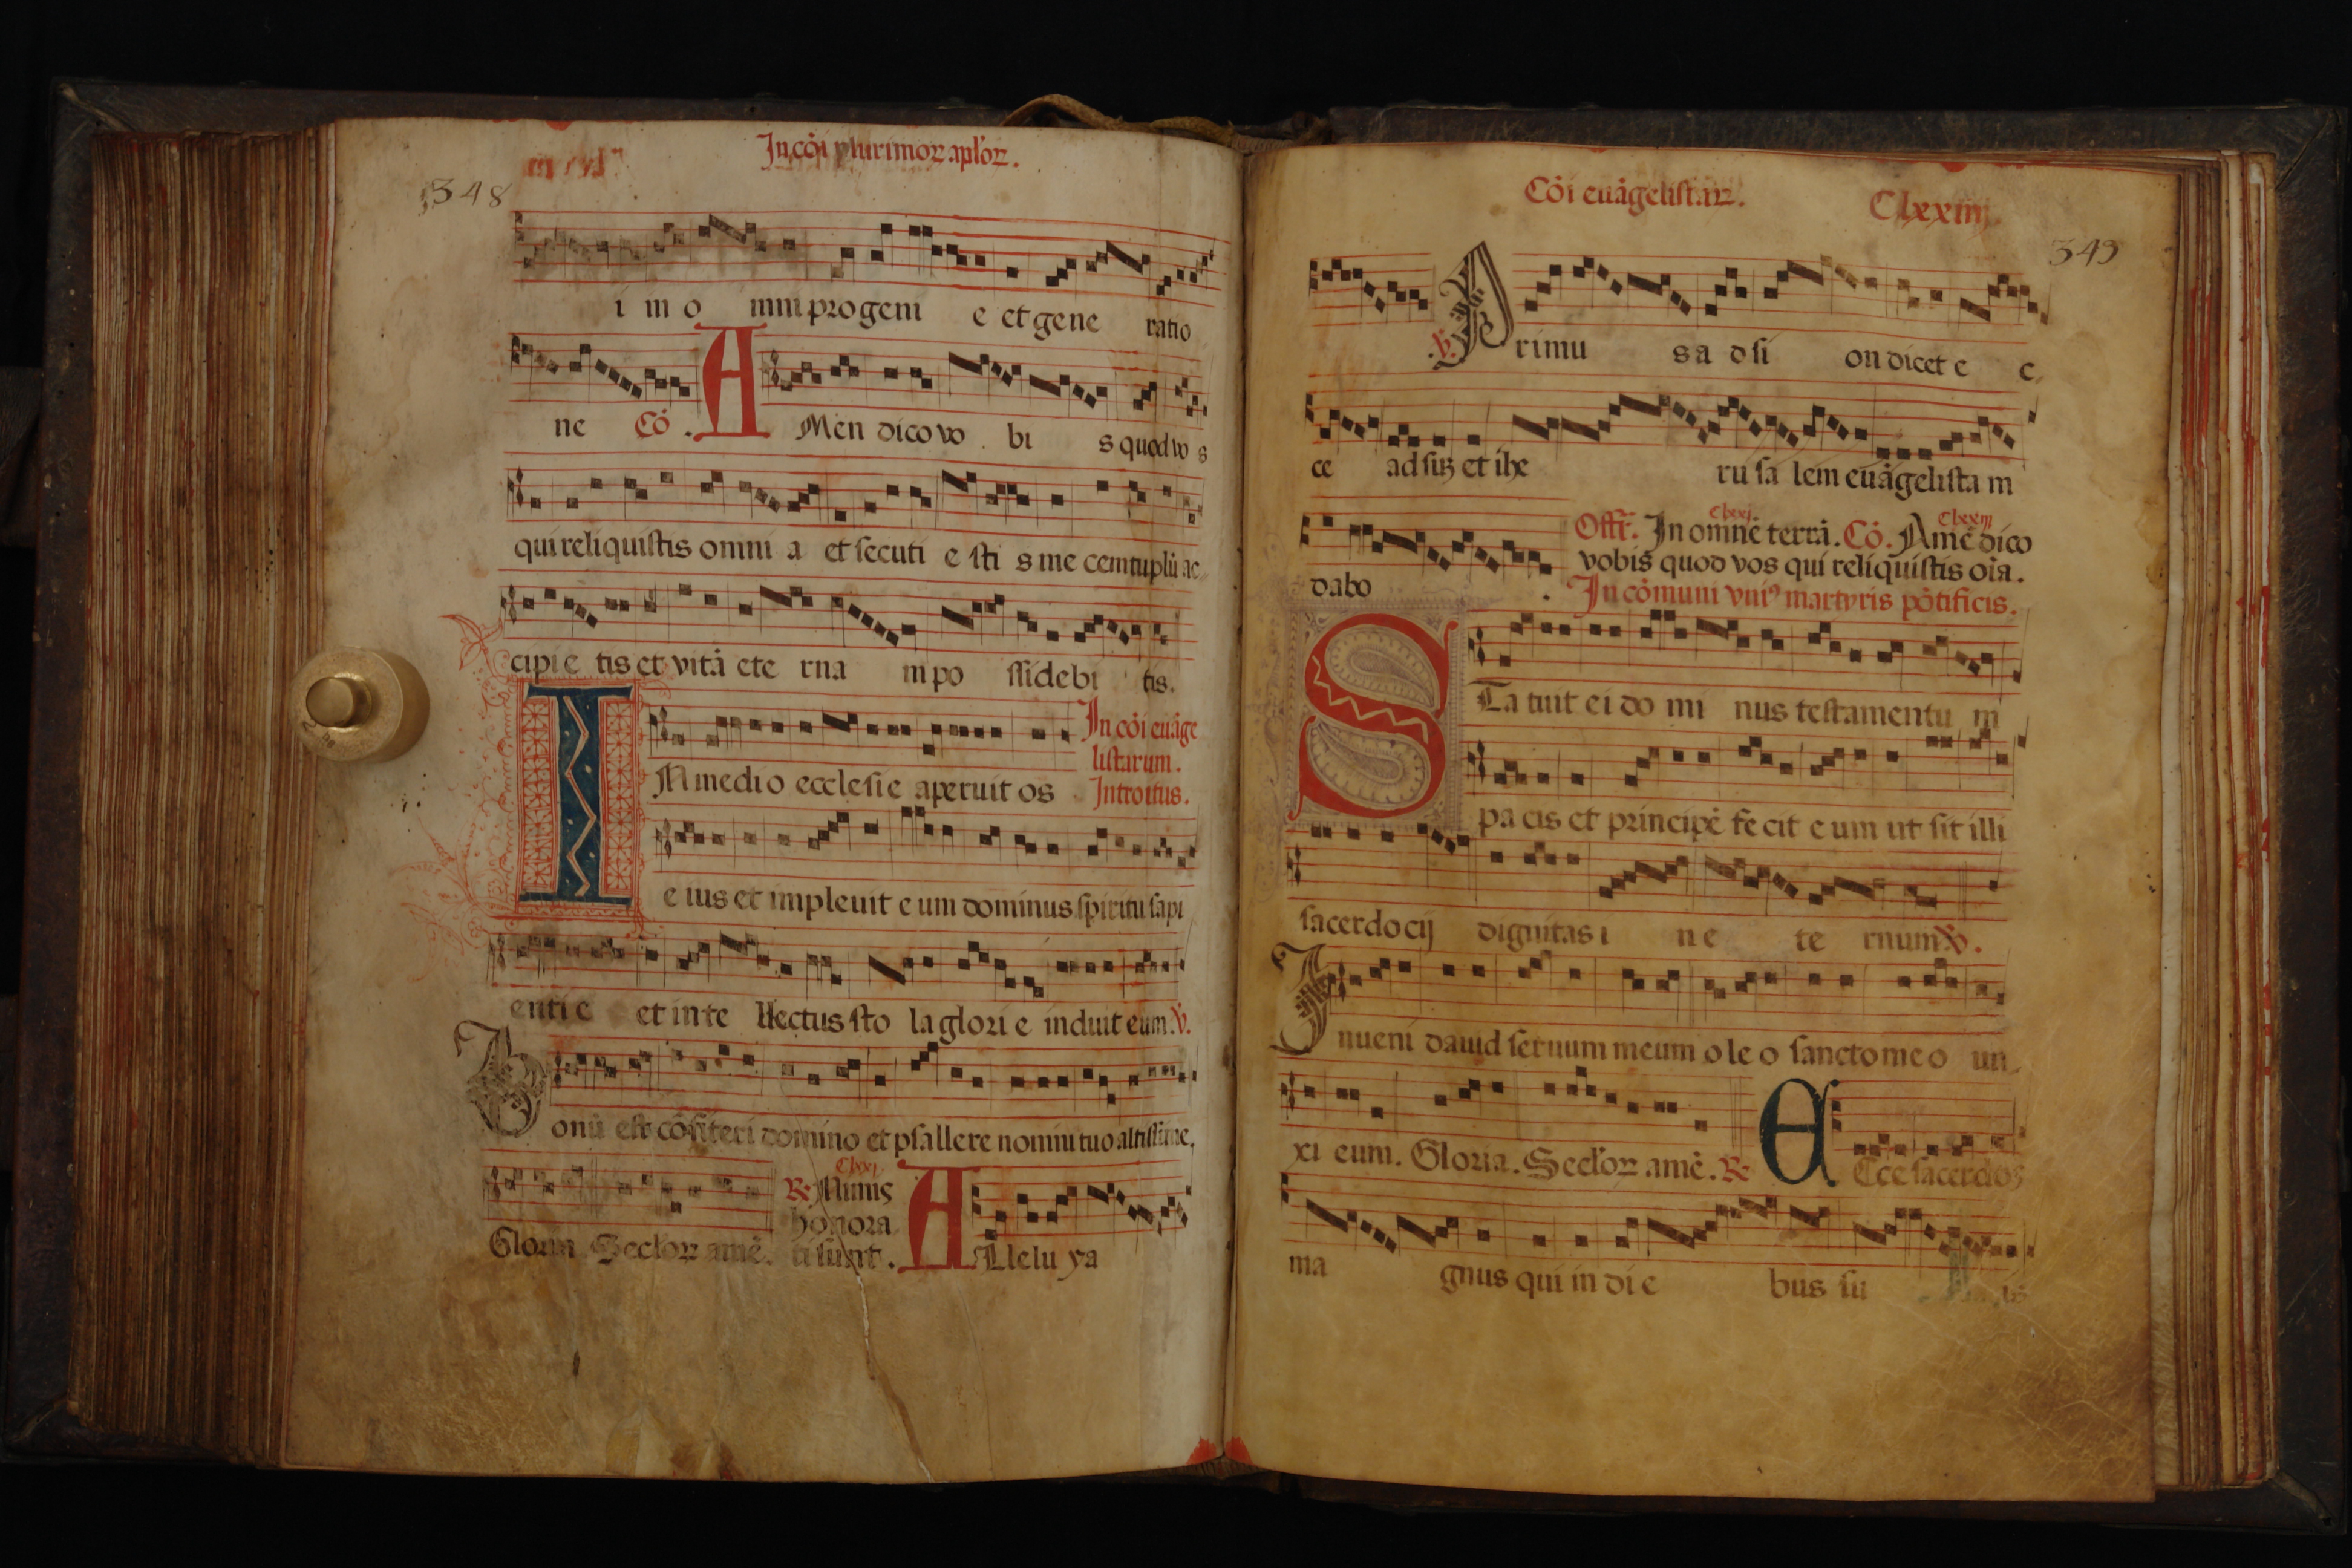 In cōi plurimoꝝ aplōꝝ.
348
i in o mni progeni e et gene ratio
ne Cō. A Men dico vo bi s quod vo s
qui reliquistis omni a et secuti e sti s me centuplū ac
cipi e tis et vitā ete rna m po ssidebi tis.
In cōi euāge
listarum.
I N medi o ecclesie aperuit os Introitus.
e ius et impleuit e um dominus spiritu sapi
enti e et in te llectus sto la glori e induit eum. ℣.
Bonū est cōfiteri domino et psallere nomini tuo altissime.
Clxxj
℟ Nimis
honora
Gloria Seclōꝝ amē. ti sunt. A Llelu ya
Cōi euāgelistaꝝ. Clxxiiij.
349
℣. Primu s a d si on dicet e c
ce ad sūt et ihe ru sa lem euāgelista m
Clxxj Clxxiij
dabo Offr̄. In omnē terrā. Cō. Amē dico
vobis quod vos qui reliquistis oīa.
In cōmuni vniꝰ martyris pōtificis.
S Ta tuit ei do mi nus testamentu m
pa cis et principē fe cit e um ut sit illi
sacerdocij dignitas i n e te rnum ℣.
Inueni dauid seruum meum o le o sancto me o un
xi eum. Gloria. Seclōꝝ amē. ℟ E Cce sacerdos
ma gnus qui in di e bus su is